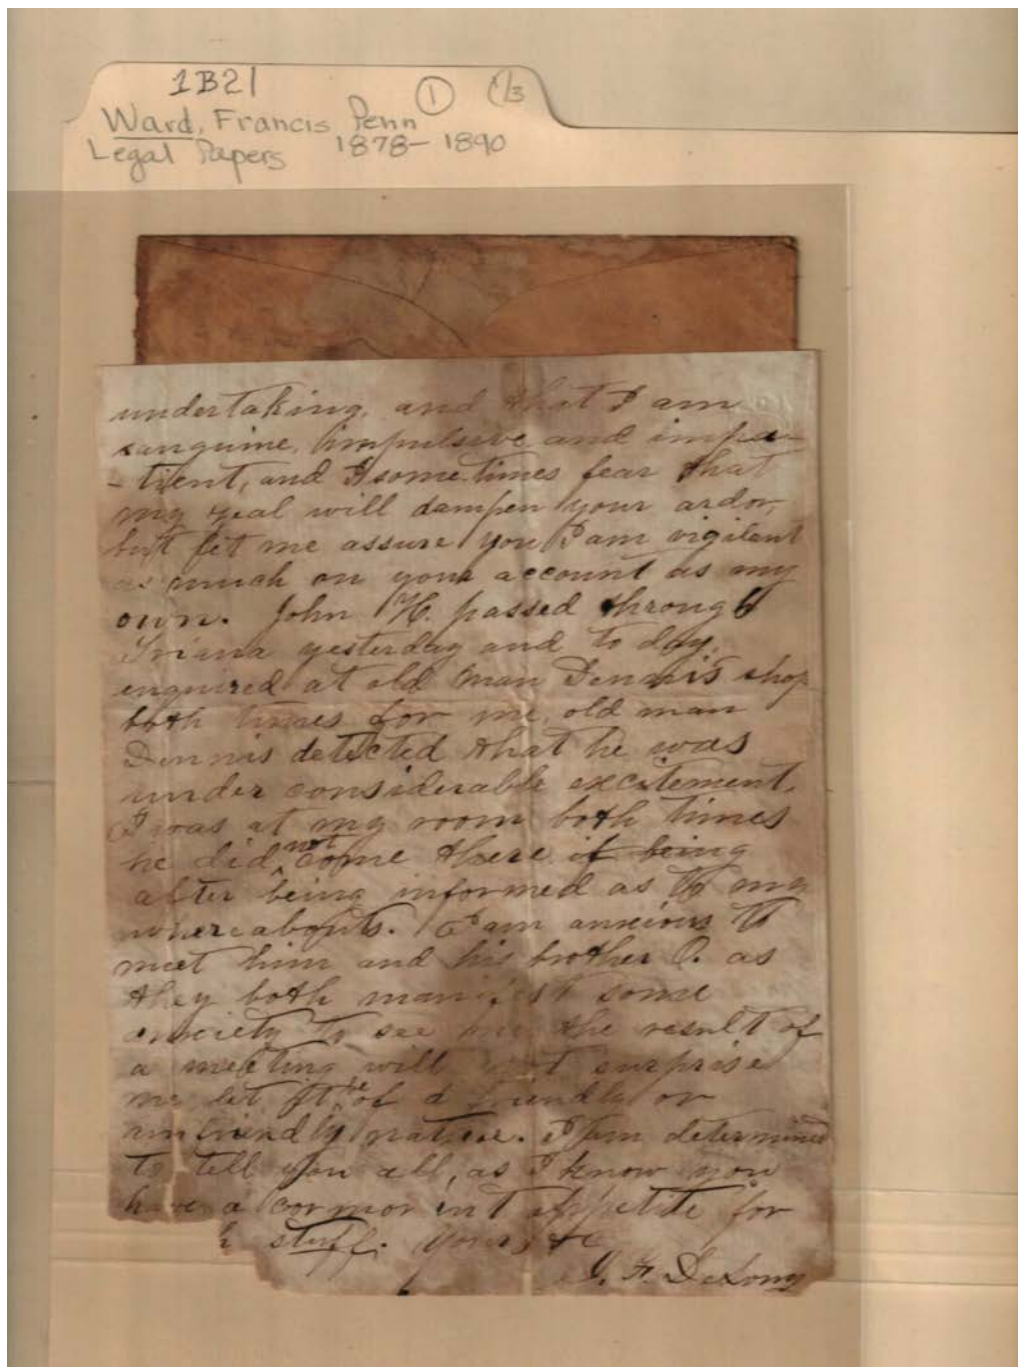 1B21
Ward, Francis Penn 1 1/3
Legal Papers 1878-1890
undertaking, and that I am
sanguine, impulsive and impa-
-tient, and I some times fear that
my zeal will dampen your ardor,
but let me assure you I am vigilant
as much on your account as my
own. John H. passed through
Triana yesterday and to day,
enquired at old man Dennis shop
both times for me, old man
Dennis detected that he was
under considerable excitement.
I was at my room both times
he did not come there if being
after being informed as to my
whereabouts. I am anxious to
meet him and his brother O. as
they both manifest some
anxiety to see me the result of
a meeting will not surprise
me let it be of a friendly or
unfriendly nature. I am determined
to tell you all, as I know you
have a cormorent appetite for
stuff. Yours, &c
J. F. DeLony